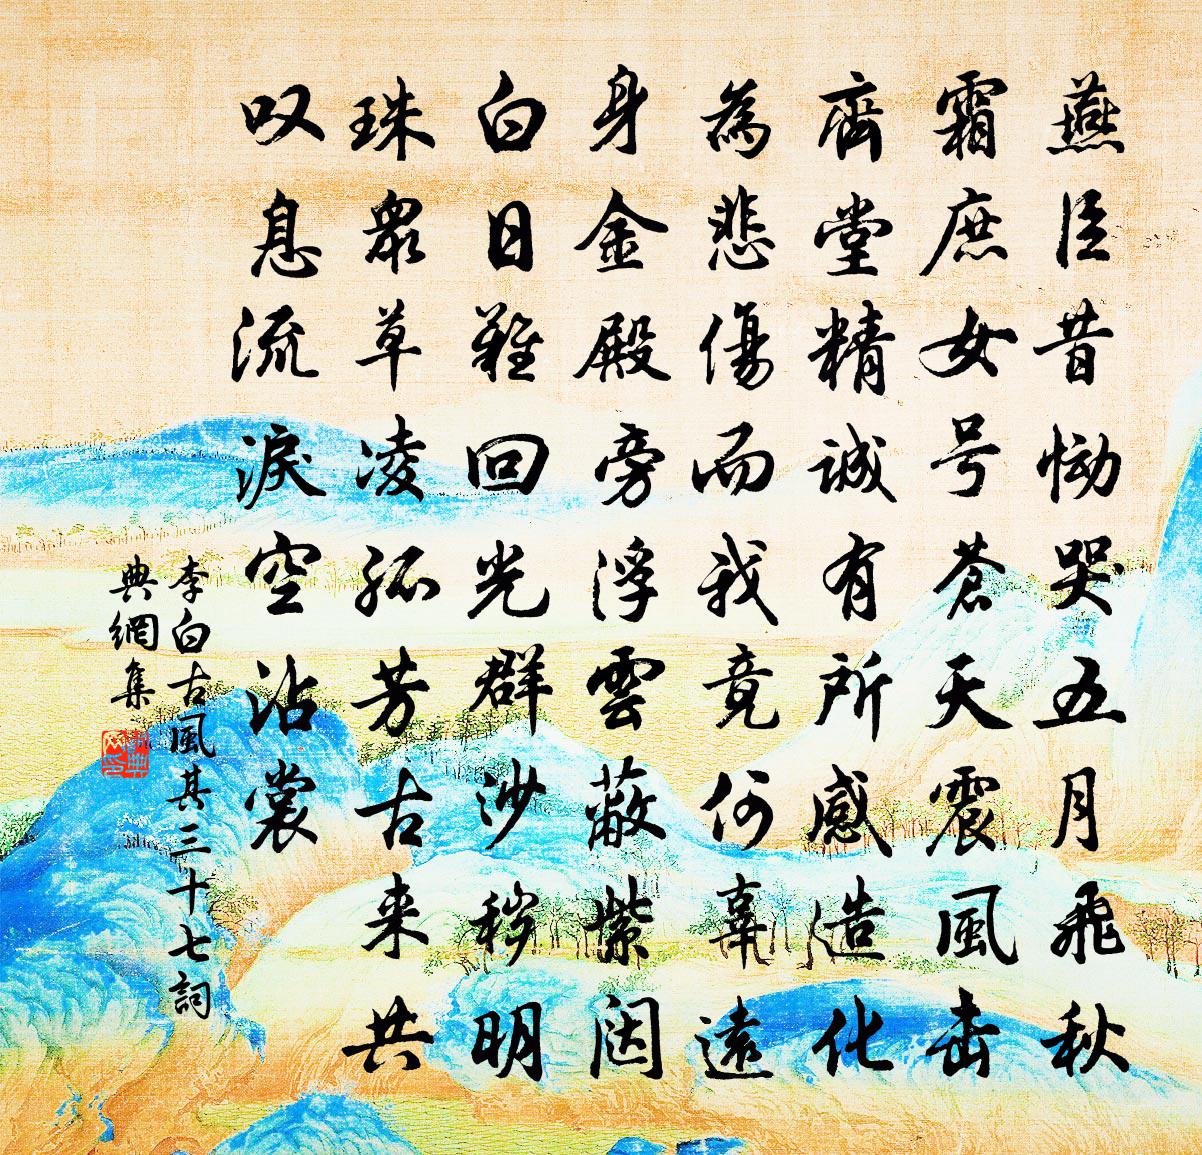 燕臣昔恸哭五月飛秋
霜庶女号蒼天震風击
齊堂精誠有所感造化
為悲傷而我竟何辜遠
身金殿旁浮雲蔽紫闼
白日難回光群沙秽明
珠眾草凌孤芳古来共
叹息流淚空沾裳
李白古風其三十七詞
典網集